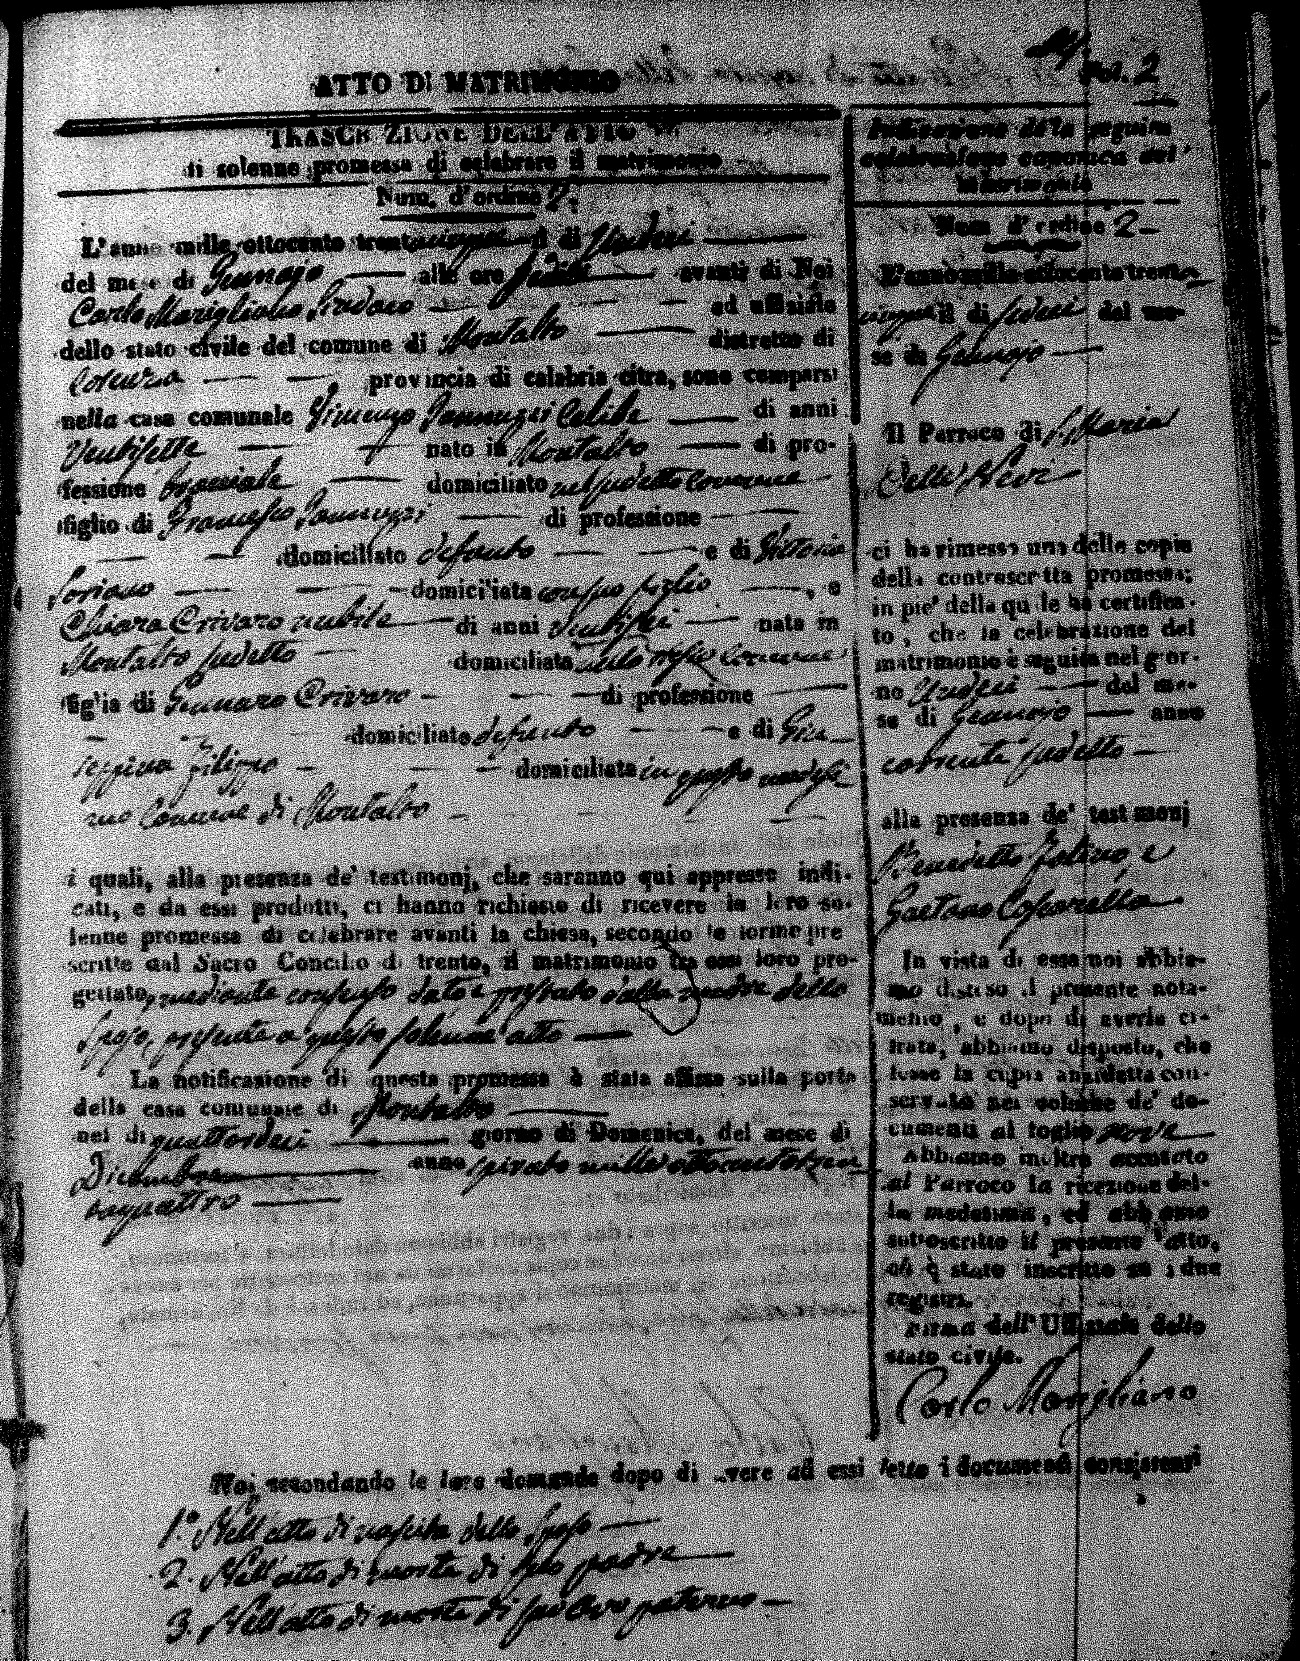 Fol. 2
ATTO DI MATRIMONIO
TRASCRIZIONE DELL'ATTO
di solenne promessa di celebrare il matrimonio
Num. d'ordine 2.
L'anno mille ottocento trentacinque il dì undeci
del mese di Gennajo alle ore avanti di Noi
Carlo Marigliano Sindaco ed uffiziale
dello stato civile del comune di Montalto distretto di
Cosenza provincia di calabria citra, sono comparsi
nella casa comunale Vincenzo Iannuzzi Celibe di anni
Ventisette nato in Montalto di pro-
fessione domiciliato nel sudetto Comune
figlio di Francesco Iannuzzi di professione
domiciliato defunto e di Vittoria
Soriano domiciliata con suo figlio , e
Chiara Crivaro nubile di anni nata in
Montalto sudetto domiciliata nello stesso Comune
figlia di Gennaro Crivaro di professione
domiciliato defunto e di Giu_
seppina Filippo domiciliata in questo medesi
mo Comune di Montalto
i quali, alla presenza de' testimonj, che saranno qui appresso indi-
cati, e da essi prodotti, ci hanno richiesto di ricevere la loro so-
lenne promessa di celebrare avanti la chiesa, secondo le forme pre
scritte dal Sacro Concilio di trento, il matrimonio tra essi loro pro-
gettato, mediante consenso dato e prestato dalla madre dello
Sposo, presente a questo solenne atto
La notificazione di questa promessa è stata affissa sulla porta
della casa comunale di Montalto
nel dì quattordeci giorno di Domenica, del mese di
Dicembre anno spirato mille ottocentotren_
taquattro
Indicazione della seguita
celebrazione canonica del
matrimonio
Num d'ordine 2
L'anno mille ottocento trenta_
cinque il dì sedeci del me-
se di Gennajo
Il Parroco di S. Maria
Delle Nevi
ci ha rimesso una delle copie
della contrascritta promessa;
in pie' della quale ha certifica-
to, che la celebrazione del
matrimonio è seguita nel gior-
no undeci del me-
se di Gennajo anno
corrente sudetto
alla presenza de' testimonj
Benedetto e
Gaetano
In vista di essa noi abbia-
mo disteso il presente nota-
mento, e dopo di averla ci-
frata, abbiamo disposto, che
fosse la copia anzidetta con-
servata nel volume de' do-
cumenti al foglio nove
Abbiamo inoltre accusato
al Parroco la ricezione del-
la medesima, ed abbiamo
sottoscritto il presente atto,
ch' è stato inscritto su i due
registri.
Firma dell' Uffiziale dello
stato civile.
Carlo Marigliano
Noi secondando le loro domande dopo di avere ad essi letto i documenti consistenti
1.° Nell'atto di nascita dello Sposo
2. Nell'atto di morte di suo padre
3. Nell'atto di morte di suo Avo paterno